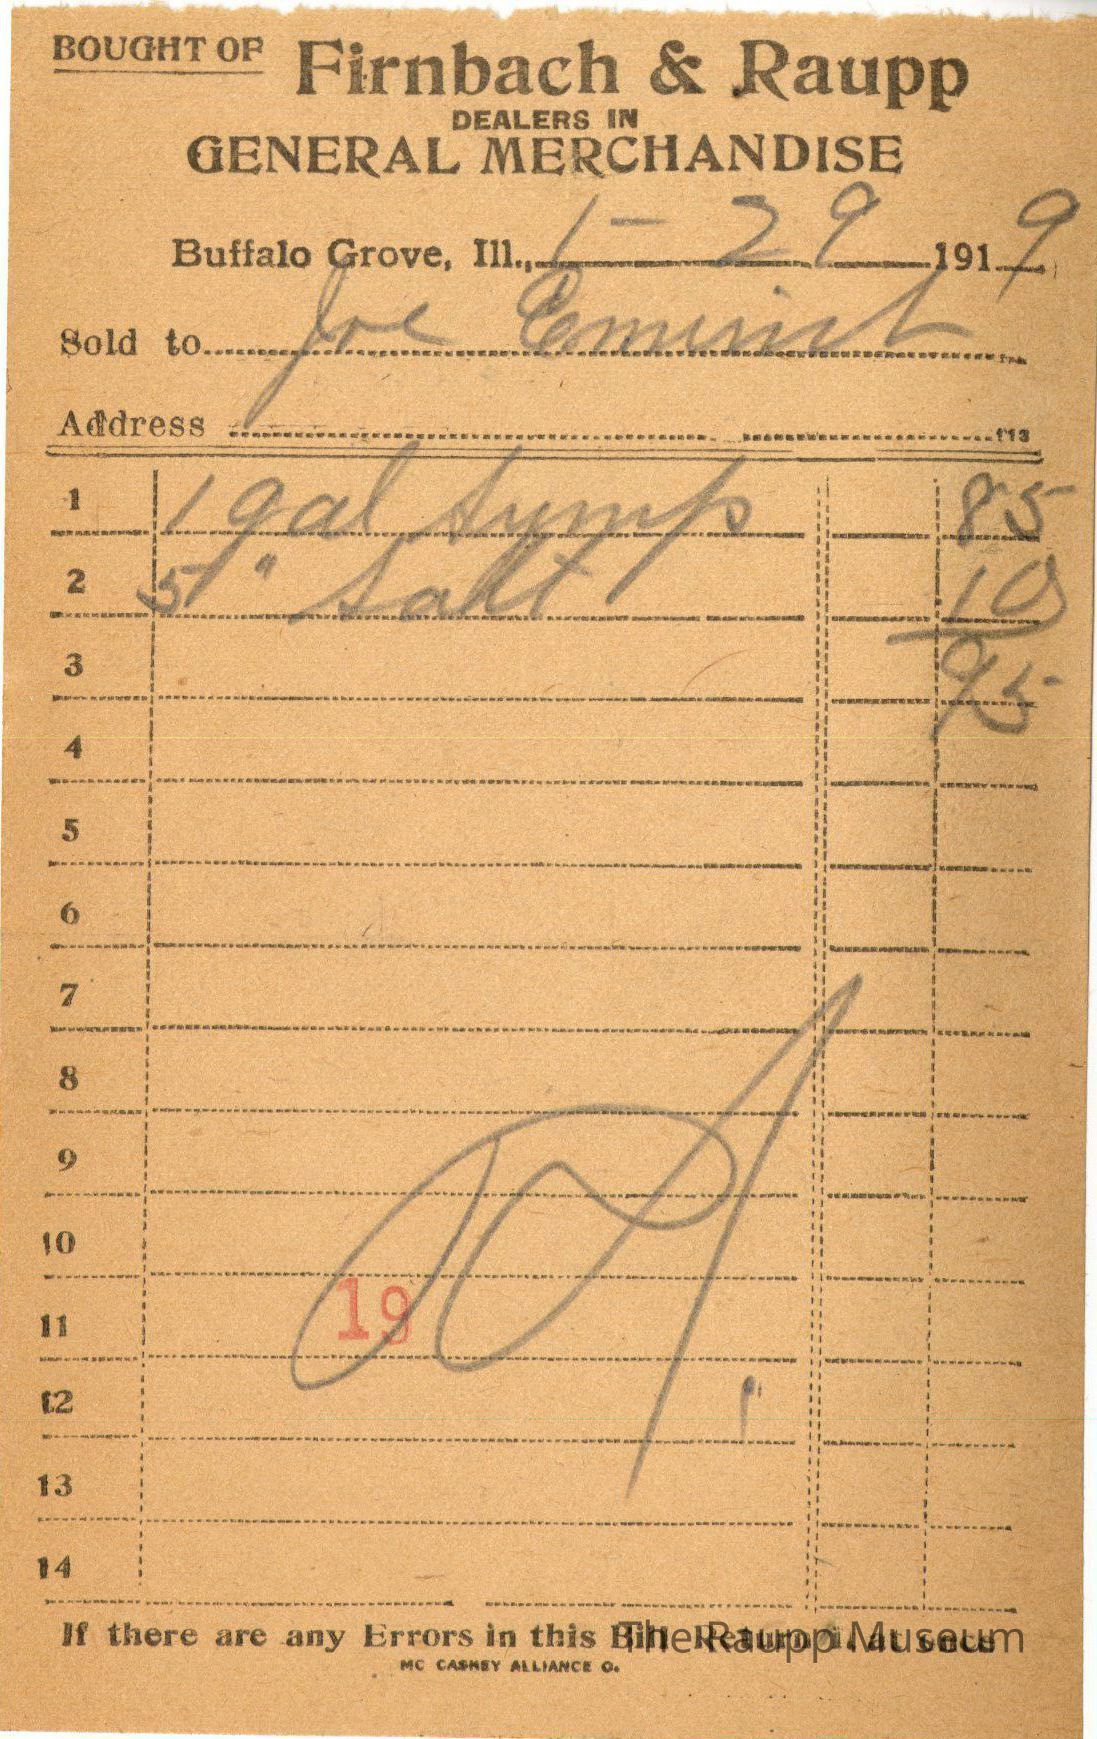 BOUGHT OF Firnbach & Raupp
DEALERS IN
GENERAL MERCHANDISE
Buffalo Grove, Ill., 1 - 29 1919
Sold to Joe
Address
1 1 gal Syrup 85
2 5 " Salt 10
3 95
4
5
6
7
8
9
10
11 19
12
13
14
If there are any Errors in this Bill Return it at once
The Raupp Museum
MC CASKEY ALLIANCE O.